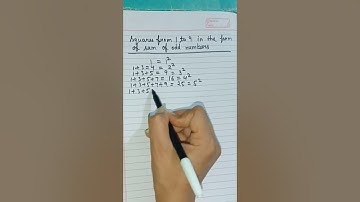 Squares from 1 to 5 in the form
of sum of odd numbers
1 = 1²
1+3 = 4 = 2²
1+3+5 = 9 = 3²
1+3+5+7 = 16 = 4²
1+3+5+7+9 = 25 = 5²
1+3+5